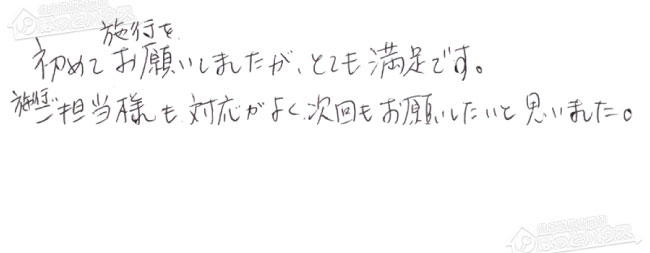 初めて施行をお願いしましたが、とても満足です。
施行ご担当様も対応がよく、次回もお願いしたいと思いました。